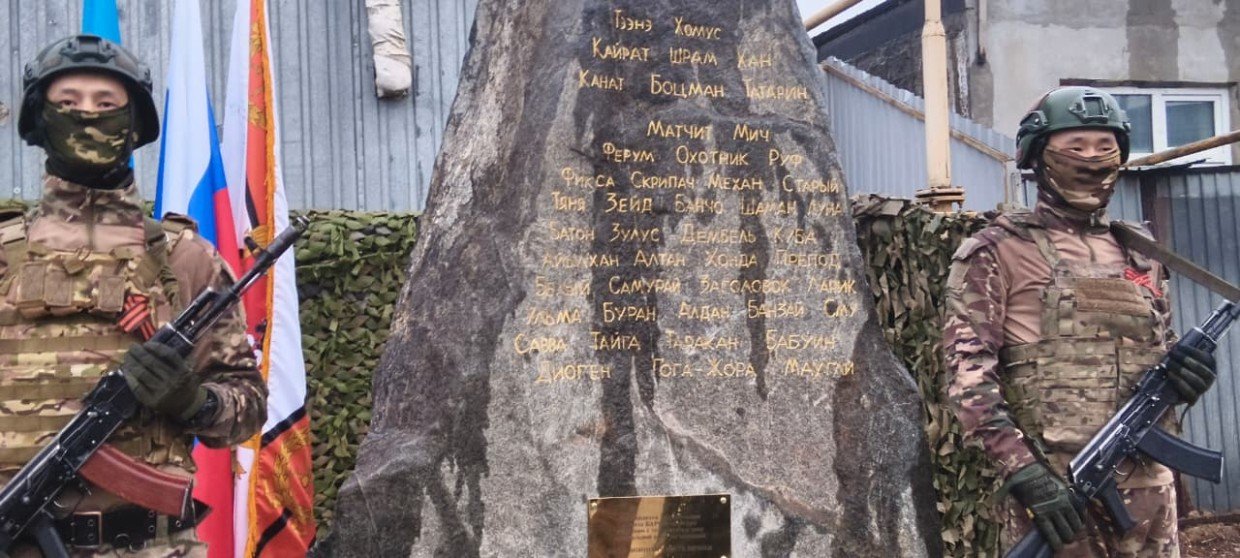 Тээнэ Хомус
Кайрат Шрам Хан
Канат Боцман Татарин
Матчит Мич
Ферум Охотник Руф
Фикса Скрипач Механ Старый
Тяня Зейд Банчо Шаман Луна
Батон Зулус Дембель Куба
Алтан Хонда Препод
Самурай Заголовок Ларик
Ульма Буран Алдан Банзай Сму
Савва Тайга Таракан Бабуин
Диоген Гога-Жора Маугли